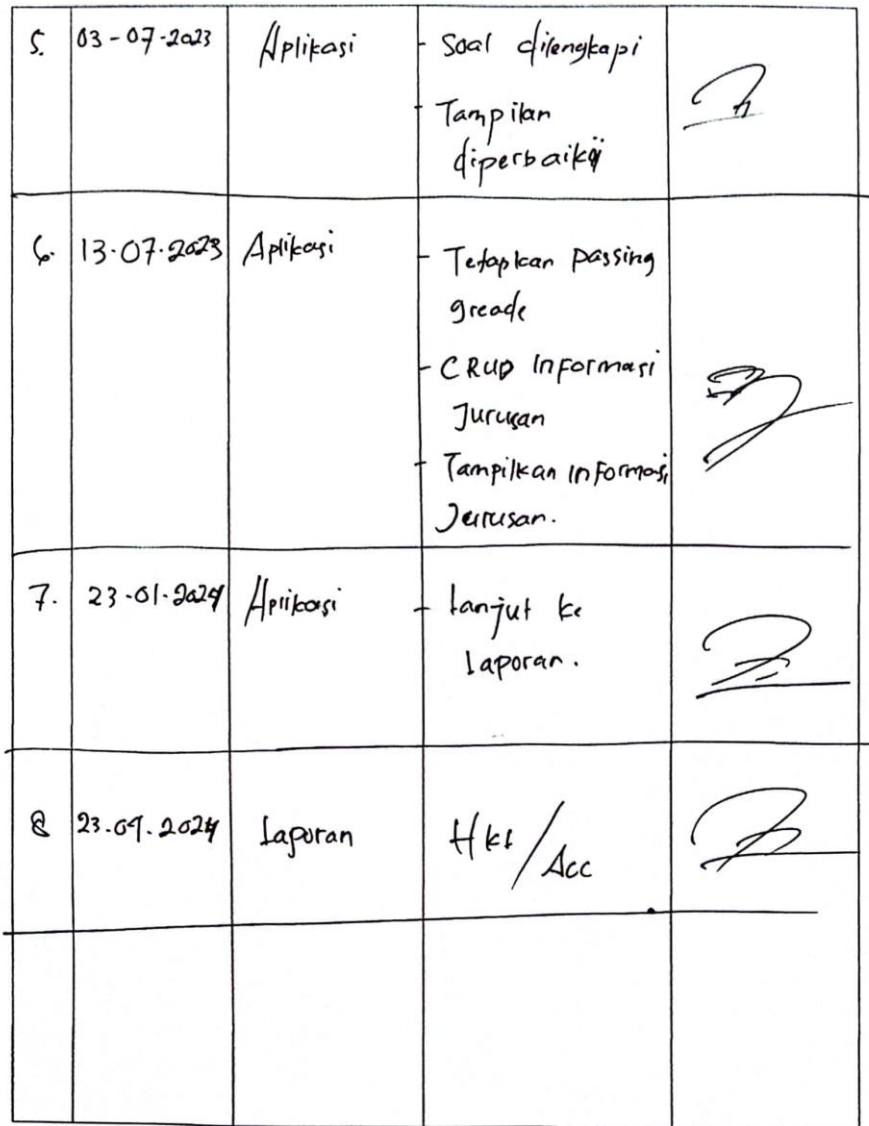 5. 03-07-2023 Aplikasi - Soal dilengkapi
- Tampilan
diperbaiki
6. 13-07-2023 Aplikasi - Tetapkan passing
greade
- CRUD Informasi
Jurusan
- Tampilkan Informasi
Jurusan.
7. 23-01-2024 Aplikasi - Lanjut ke
Laporan.
8 2024 Laporan
Acc